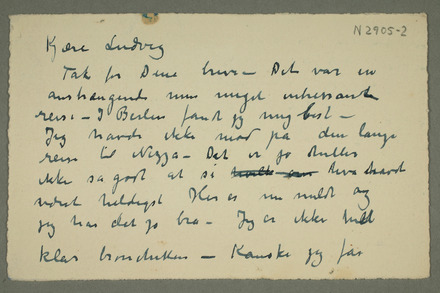 N 2905-2
Kjære Ludvig
Tak for Dine breve – Det var en
anstrængende men meget interessante
reise – I Berlin fandt jeg mig best –
Jeg havde ikke mod på den lange
reise til Nizza – Det er jo heller
ikke så godt at si
været heldigst Her er nu mildt og
jeg har det jo bra – Jeg er ikke helt
klar bronchiten – Kanske jeg får